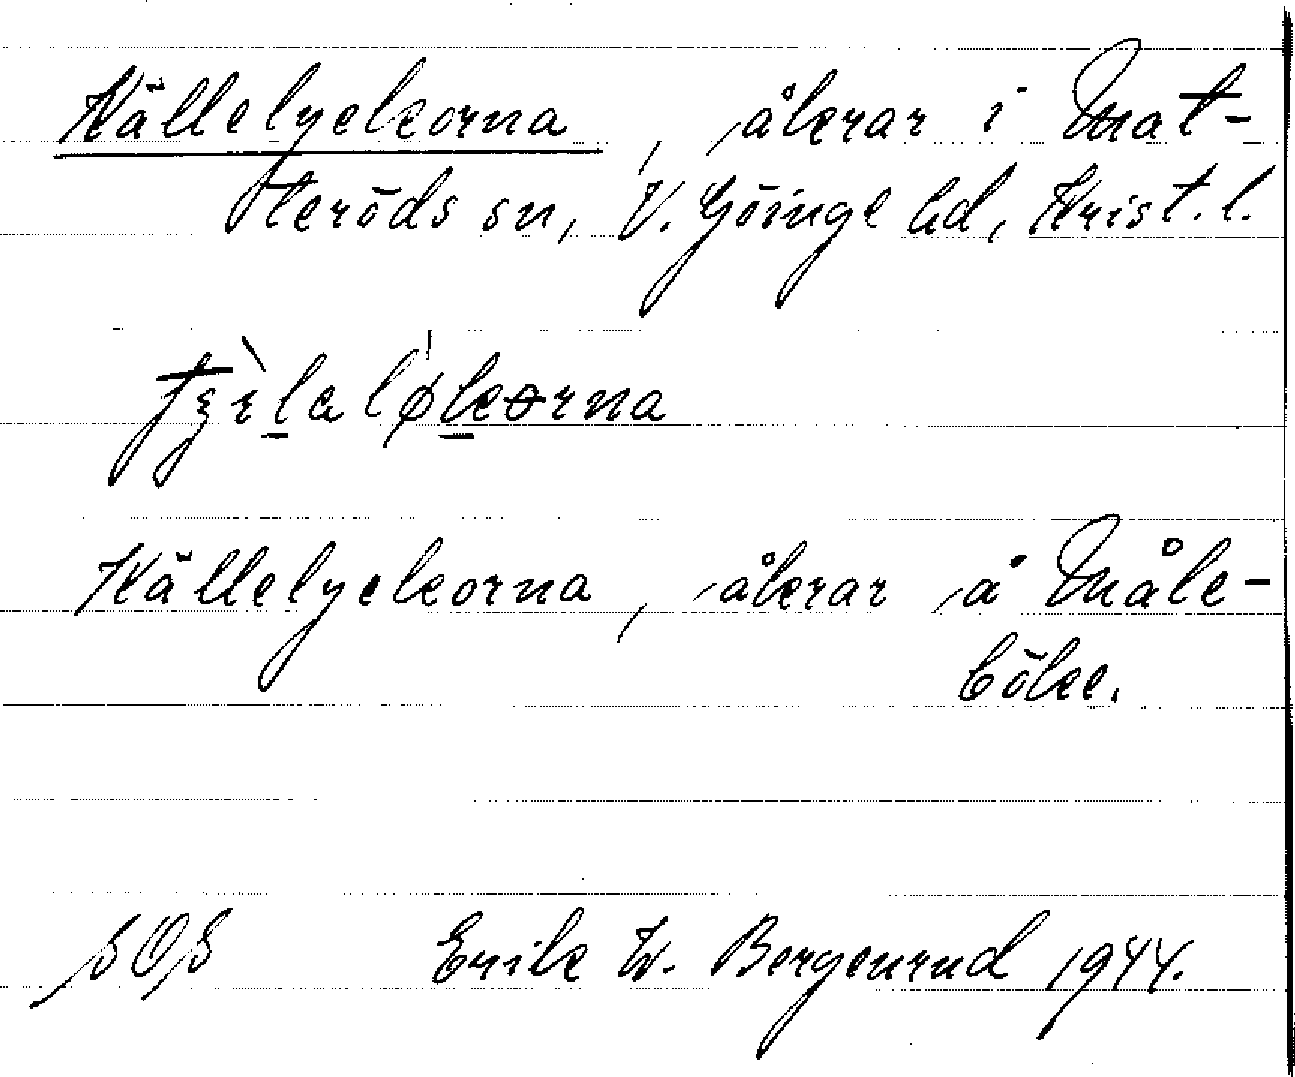 Källelyckorna, åkrar i Mat-
teröds sn, V. Göinge hd, Krist. l.
Källelyckorna, åkrar å Måle-
böke.
SOS Erik W. Bergenrud 1944.